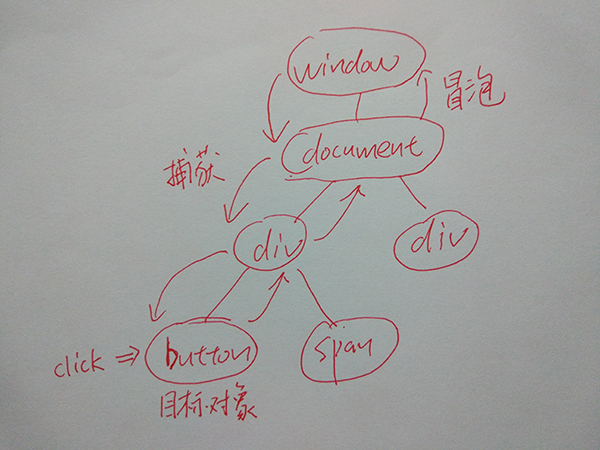 window
冒泡
document
捕获
div
div
click ⇒ button
span
目标对象